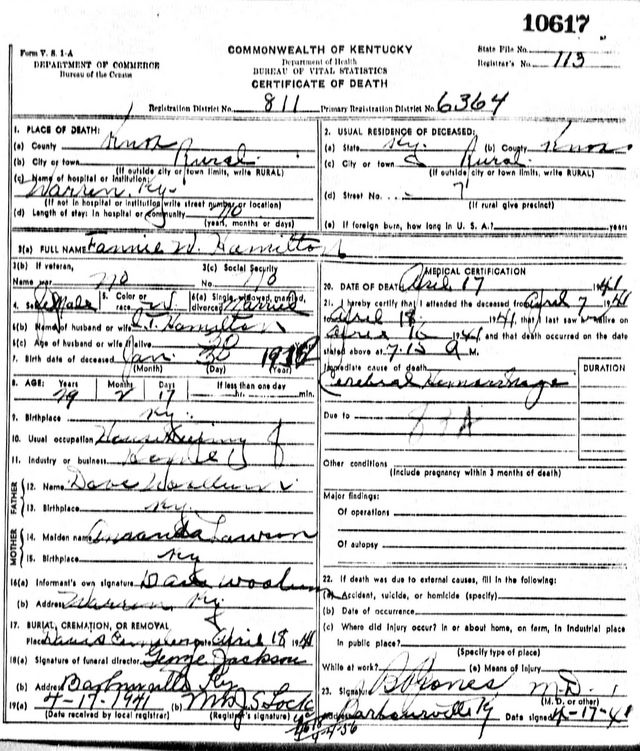 10617
Form V. S. 1-A
DEPARTMENT OF COMMERCE
Bureau of the Census
COMMONWEALTH OF KENTUCKY
Department of Health
BUREAU OF VITAL STATISTICS
CERTIFICATE OF DEATH
State File No.
Registrar's No. 113
Registration District No. 811 Primary Registration District No. 6364
1. PLACE OF DEATH:
(a) County Knox
(b) City or town Rural
(If outside city or town limits, write RURAL)
(c) Name of hospital or Institution:
Warren, Ky.
(If not in hospital or institution, write street number or location)
(d) Length of stay: In hospital or community no
(years, months or days)
2. USUAL RESIDENCE OF DECEASED:
(a) State Ky. (b) County Knox
(c) City or town Rural
(If outside city or town limits, write RURAL)
(d) Street No.
(If rural give precinct)
(e) If foreign born, how long in U. S. A.? years
3(a) FULL NAME Fannie W. Hamilton
3(b) If veteran,
Name war no
3(c) Social Security
No. no
4. Sex Female 5. Color or race W. 6(a) Single, widowed, married, divorced Married
6(b) Name of husband or wife Hamilton
6(c) Age of husband or wife if alive 30
7. Birth date of deceased Jan 30 1912
(Month) (Day) (Year)
8. AGE: Years Months Days If less than one day
29 2 17 hr. min.
9. Birthplace Ky.
10. Usual occupation House Keeping
11. Industry or business
FATHER
12. Name Dave
13. Birthplace Ky.
MOTHER
14. Maiden name Amanda Lawson
15. Birthplace Ky
16(a) Informant's own signature Dave Woolum
(b) Address Warren Ky.
17. BURIAL, CREMATION, OR REMOVAL
Place Date April 18 1941
18(a) Signature of funeral director George Jackson
(b) Address Barbourville Ky
19(a) 4-17-1941 (b) Lock
(Date received by local registrar) (Registrar's signature)
MEDICAL CERTIFICATION
20. DATE OF DEATH April 17 1941
21. I hereby certify that I attended the deceased from April 7 1941
to April 18 1941, that I last saw alive on
April 16 1941 and that death occurred on the date
stated above at 7:15 A M.
Immediate cause of death
Cerebral Hemorrhage
DURATION
Due to
Other conditions
(Include pregnancy within 3 months of death)
Major findings:
Of operations
Of autopsy
22. If death was due to external causes, fill in the following:
(a) Accident, suicide, or homicide (specify)
(b) Date of occurrence
(c) Where did Injury occur? In or about home, on farm, in industrial place
In public place?
(Specify type of place)
While at work? (e) Means of Injury
23. Signature Jones M.D.
(M. D. or other)
Address Barbourville Ky Date signed 4-17-41